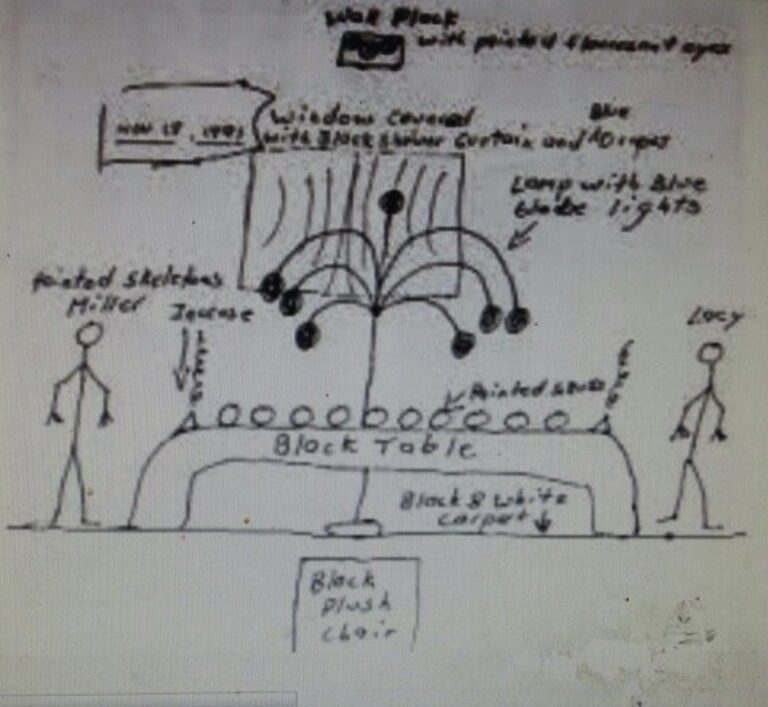 Wall Plack
with painted floursant eyes
NOV 18, 1991
Window covered
with Black Shower Curtain and Blue Drapes
Lamp with Blue
Globe lights
Painted Skeletons
Miller
Incense
Lacy
Painted
Black Table
Black & White
Carpet
Black
Plush
Chair